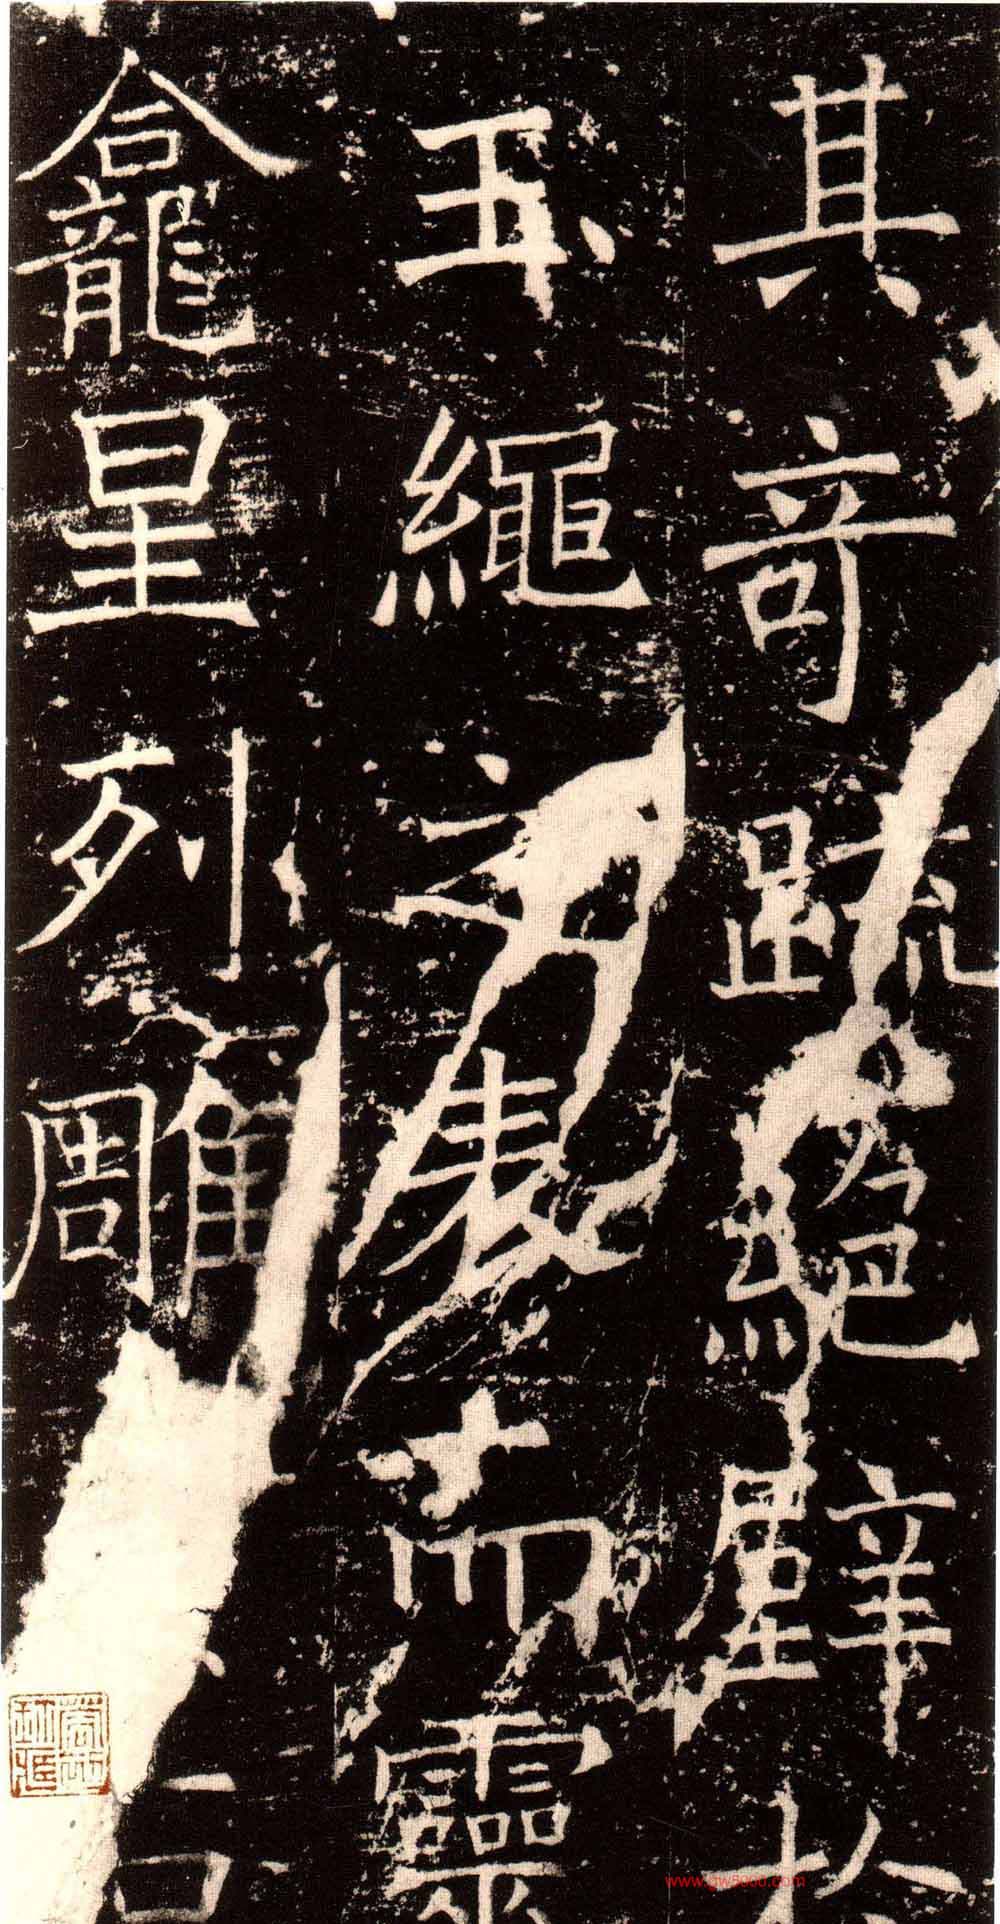 其奇疏絕壁於
玉繩之表而靈
龕星列雕石
www.gw5000.com